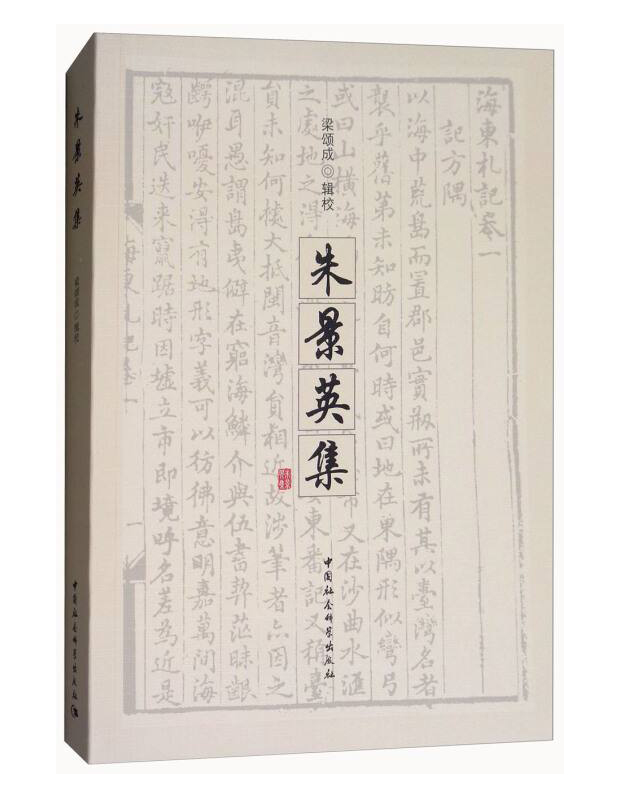 朱景英集
梁颂成◎辑校
中国社会科学出版社
梁颂成◎辑校
朱景英集
中国社会科学出版社
海東札記卷一
記方隅
以海中荒島而置郡邑實剏所未有其以臺灣名者
襲乎舊第未知昉自何時或曰地在東隅形似彎弓
或曰山橫海 市又在沙曲水滙
之處地之得 東番記又稱臺
員未知何據大抵閩音灣員相近故涉筆者亦因之
混耳愚謂島夷僻在窮海鱗介與伍書契茫昧齦
齶咿嚘安得有地形字義可以彷彿意明嘉萬間海
寇奸民迭來竄踞時因墟立市即境呼名差為近是
海東札記卷一